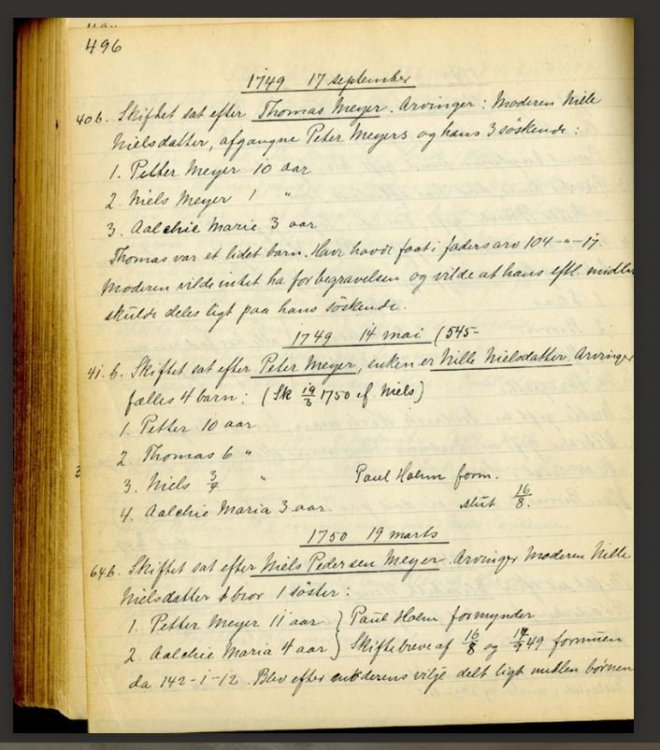 496
1749 17 september
40b. Skiftet sat efter Thomas Meyer. Arvinger: Moderen Nille
Nielsdatter, afgangne Peter Meyers og hans 3 söskende:
1. Petter Meyer 10 aar
2. Niels Meyer 1 "
3. Aalchie Marie 3 aar
Thomas var et lidet barn. Han havde faat i fadersarv 104-"-17.
Moderen vilde intet ha for begravelsen og vilde at hans eftl. midler
skulde deles ligt paa hans söskende.
1749 14 mai (545-
41.b. Skiftet sat efter Peter Meyer, enken er Nille Nielsdatter. Arvinger
fælles 4 barn: (Sk 19/3 1750 ef. Niels)
1. Petter 10 aar
2 Thomas 6 "
3. Niels 3/4 " Paul Holm form.
4. Aalchie Maria 3 aar. slut 16/8.
1750 19 marts
64b. Skiftet sat efter Niels Pedersen Meyer. Arvinger moderen Nille
Nielsdatter 1 bror 1 söster:
1. Petter Meyer 11 aar } Paul Holm formynder
2. Aalchie Maria 4 aar } Skiftebreve af 16/8 og 49 formuen
da 142-1-12. Blev efter moderens vilje delt ligt mellem börnene